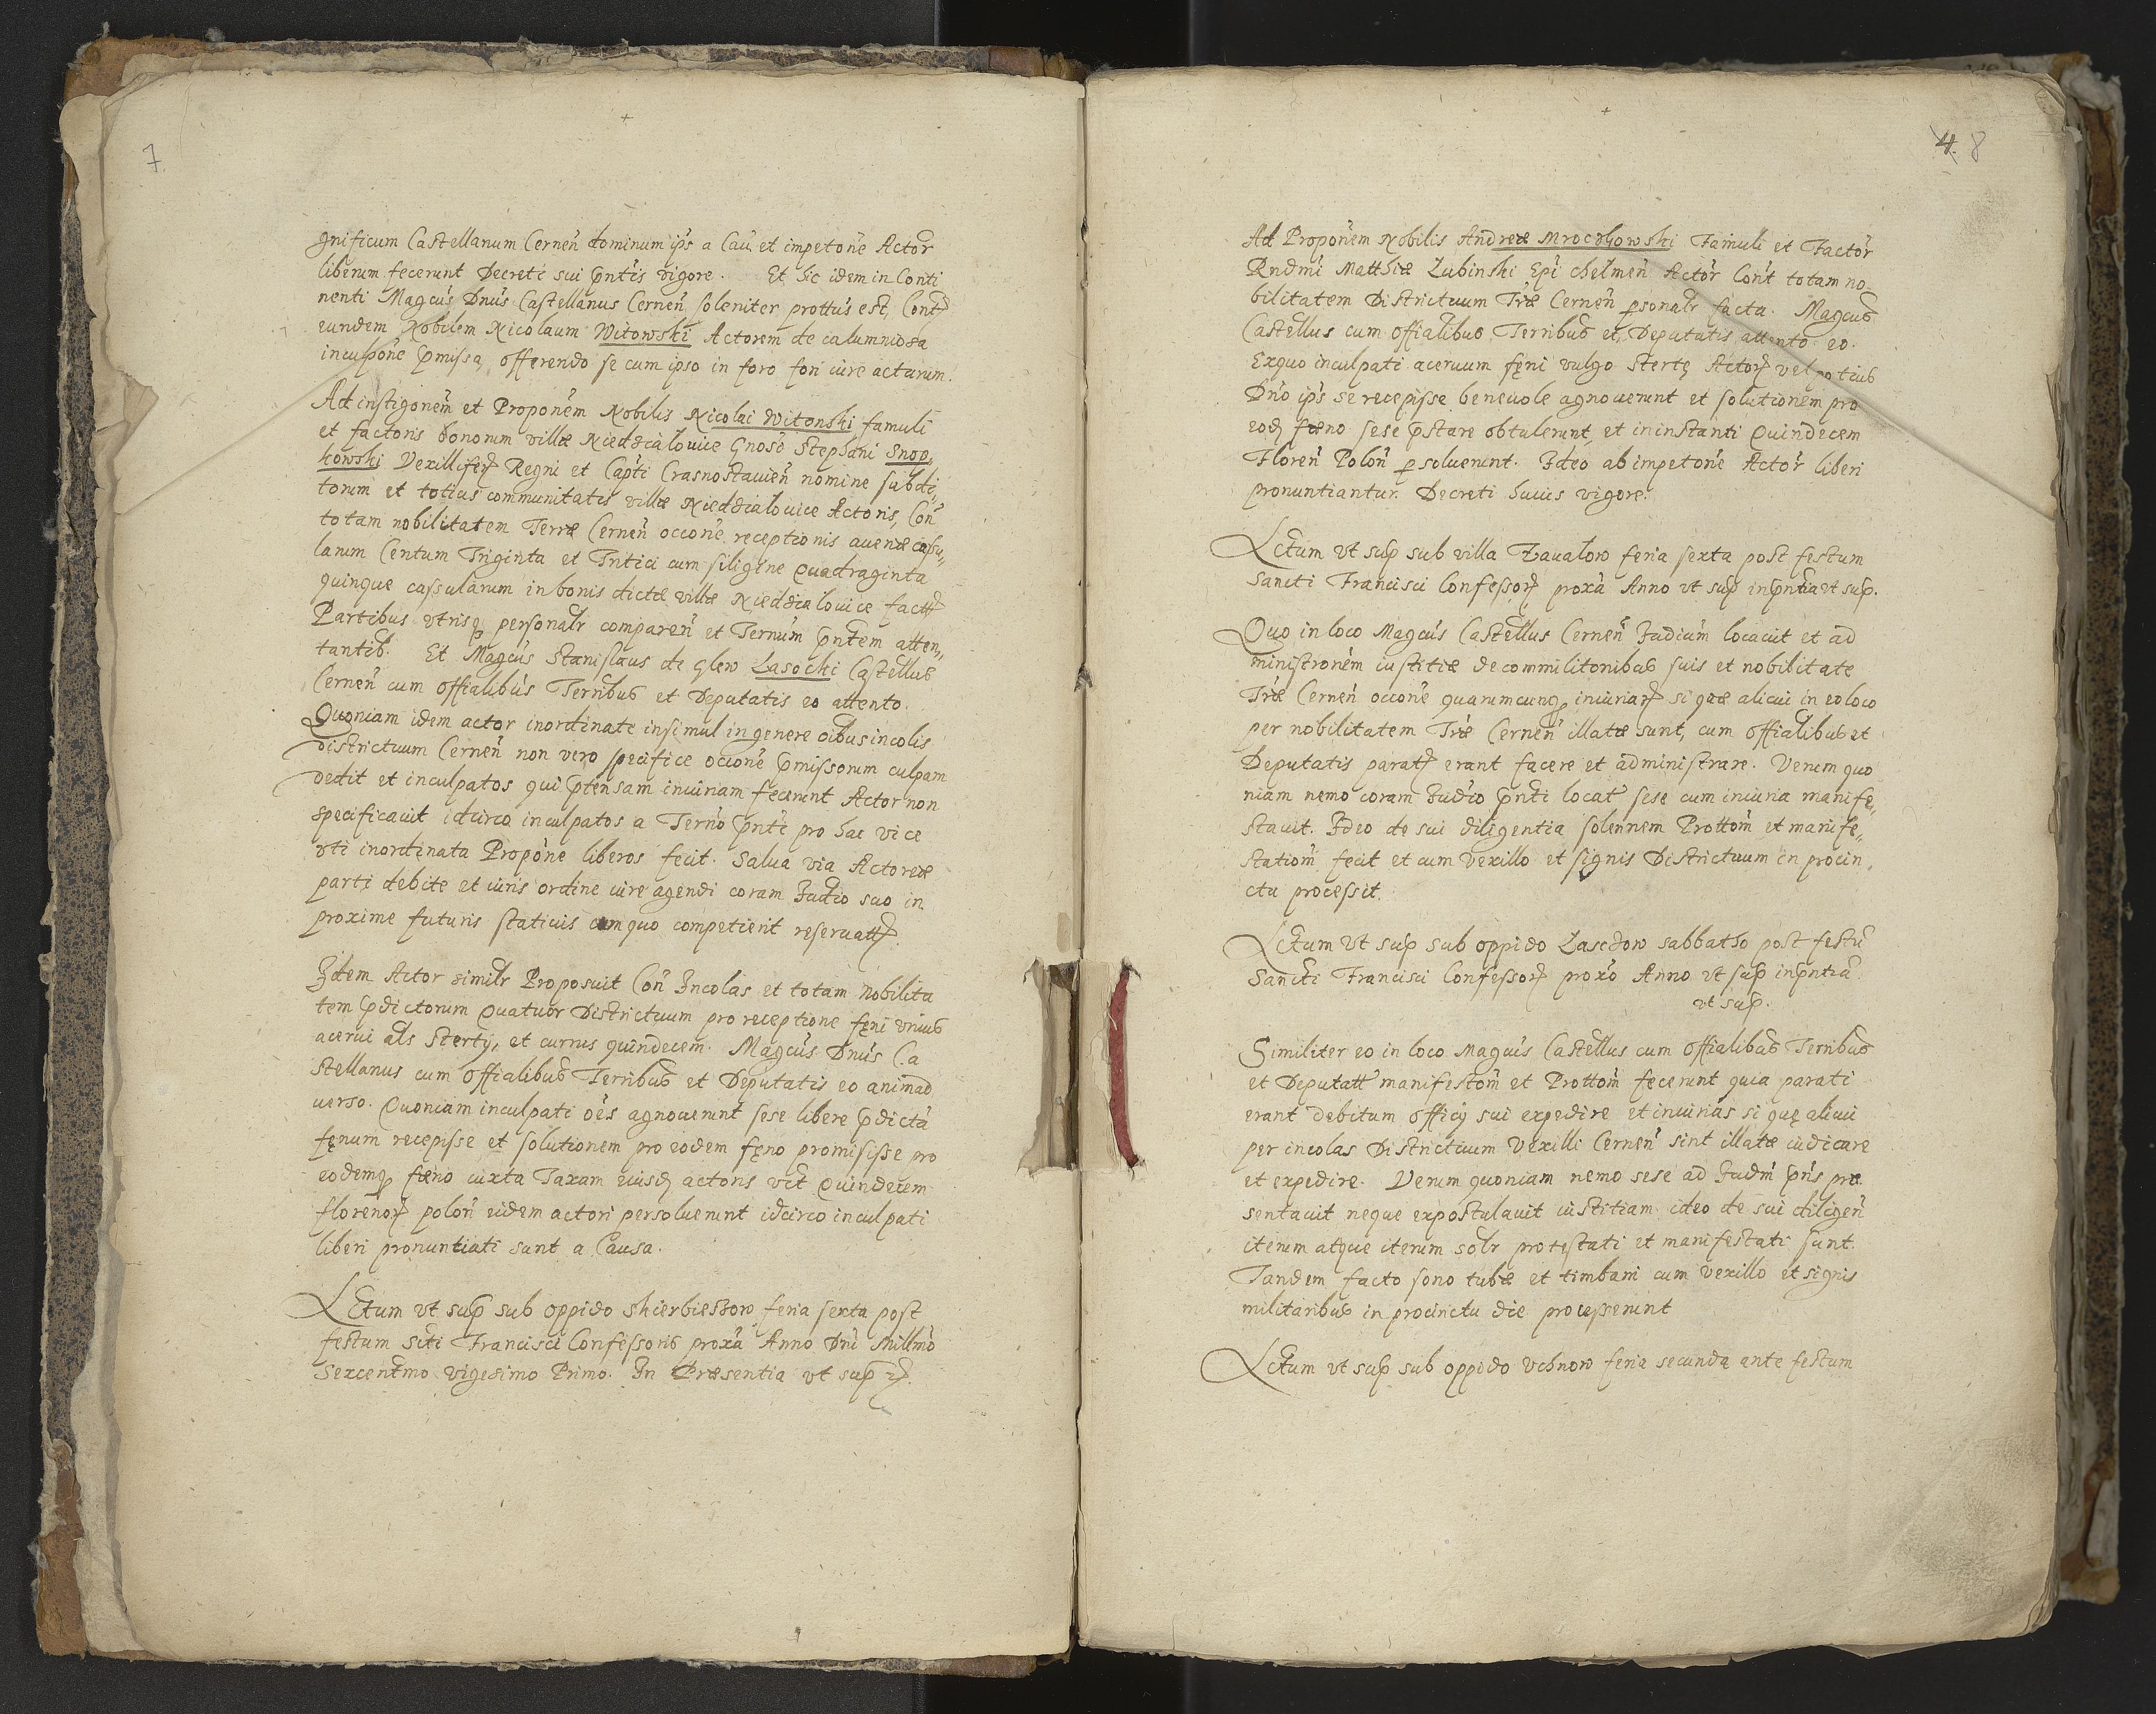 7.
gnificum Castellanum Cerneñ dominum ip̃s a Cau. et impetoñe Actor
liberum fecerunt Decreti sui p̃ntis vigore. Et hic idem in Conti
nenti Magcus Dnus Castellanus Cerneñ soleniter prottus est, Contr
eundem Nobilem Nicolaum Witowski Actorem de calumniosa
inculpoñe p̃missa, offerendo se cum ipso in foro fori iure acturum.
Ad instigoñem et Propoñem Nobilis Nicolai Witonski famuli
et factoris bonorum villæ Niedzialowice Gnosi Stephani Snop,
kowski Vexilliferi Regni et Capti Crasnostavieñ nomine subdi,,
torum et totius communitatis villæ Niedzialouice Actoris, Coñ
totam nobilitatem Terræ Cerneñ occoñe receptionis auenæ cassu,,
larum Centum Triginta et Tritici cum siligine Quadraginta
quinque cassularum in bonis dictæ villæ Niedzialouice factt
Partibus vtrisq personalr compareñ et Ternum p̃ntem atten,,
tantib. Et Magcus Stanislaus de Glew Lasochi Castellus
Cerneñ cum Offialibus Terribus et Deputatis eo attento.
Quoniam idem actor inordinate insimul in genere oibus incolis
Districtuum Cerneñ non vero specifice occoñe p̃missorum culpam
dedit et inculpatos qui p̃tensam iniuriam fecerunt Actor non
specificauit idcirco inculpatos a Terno p̃nti pro hac vice
vti inordinata Propoñe liberos fecit. Salua via Actoreæ
parti debite et iuris ordine iure agendi coram Judio suo in
proxime futuris statiuis cum quo competierit reseruatt.
Idem Actor similr Proposuit Coñ Incolas et totam Nobilita
tem p̃dictorum Quatuor Districtuum pro receptione fęni vnius
acerui als Sterty, et currus quindecem. Magcus Dnus Ca
stellanus cum Offialibus Terribus et Deputatis eo animad
uerso. Quoniam inculpati oẽs agnouerunt sese libere p̃dictã
fęnum recepisse et solutionem pro eodem fęno promisisse pro
eodemq fæno iuxta Taxam eiusd actoris vĩt Quindecem
florenor poloñ eidem actori persoluerunt idcirco inculpati
liberi pronuntiati sunt a Causa.
Actum vt sup sub oppido Skierbieszow feria sexta post
festum Scti Francisci Confessoris proxã Anno Dni Millmo
Sexcentmo vigesimo Primo. In Præsentia vt sup
4. 8
Ad Propoñem Nobilis Andreæ Mroczkowski Famuli et Factor
Rndmi Matthiæ Lubinski Epi chelmeñ Actor Cont totam no-
bilitatem Districtuum Tr̃æ Cerneñ psonalr facta. Magcus
Castellus cum Offialibus Terribus et Deputatis attento eo.
Exquo inculpati aceruum fęni vulgo stertę Actor vel potius
Dño ip̃s se recepisse beneuole agnouerunt et solutionem pro
eod fæno sese p̃stare obtulerunt, et in instanti Quindecem
Floreñ Poloñ psoluerunt. Ideo ab impetoñe Actor liberi
pronuntiantur. Decreti huius vigore.
Actum vt sup sub villa Zaualow feria sexta post festum
Sancti Francisci Confessor proxã Anno vt sup inp̃ntia vt sup.
Quo in loco Magcus Castellus Cerneñ Judicium locauit et ad
ministroñem iustitiæ de commilitonibus suis et nobilitate
Tr̃æ Cerneñ occoñe quarumcunq iniuriar si quæ alicui in eo loco
per nobilitatem Tr̃æ Cerneñ illatæ sunt, cum Offialibus et
Deputatis parati erant facere et administrare. Verum quo
niam nemo coram Judio p̃nti locat sese cum iniuria manife,,
stauit. Ideo de sui diligentia solennem Prottom et manife,,
station fecit et cum vexillo et signis Districtuum in procin,
ctu processit.
Actum vt sup sub oppido Laszczow sabbatho post festũ
Sancti Francisci Confessor proxo Anno vt sup inp̃ntiã
vt sup.
Similiter eo in loco Magcus Castellus cum Offialibus Terribus
et Deputatt manifestom et Prottom fecerunt quia parati
erant debitum officij sui expedire et iniurias si quę alicui
per incolas Districtuum Vexilli Cerneñ sint illatæ iudicare
et expedire. Verum quoniam nemo sese ad Judm p̃ns præ
sentauit neque expostulauit iustitiam ideo de sui diligeñ
iterum atque iterum solr protestati et manifestati sunt.
Tandem facto sono tubæ et timbani cum vexillo et signis
militaribus in procinctu die processerunt
Actum vt sup sub oppido Vchnow feria secunda ante festum